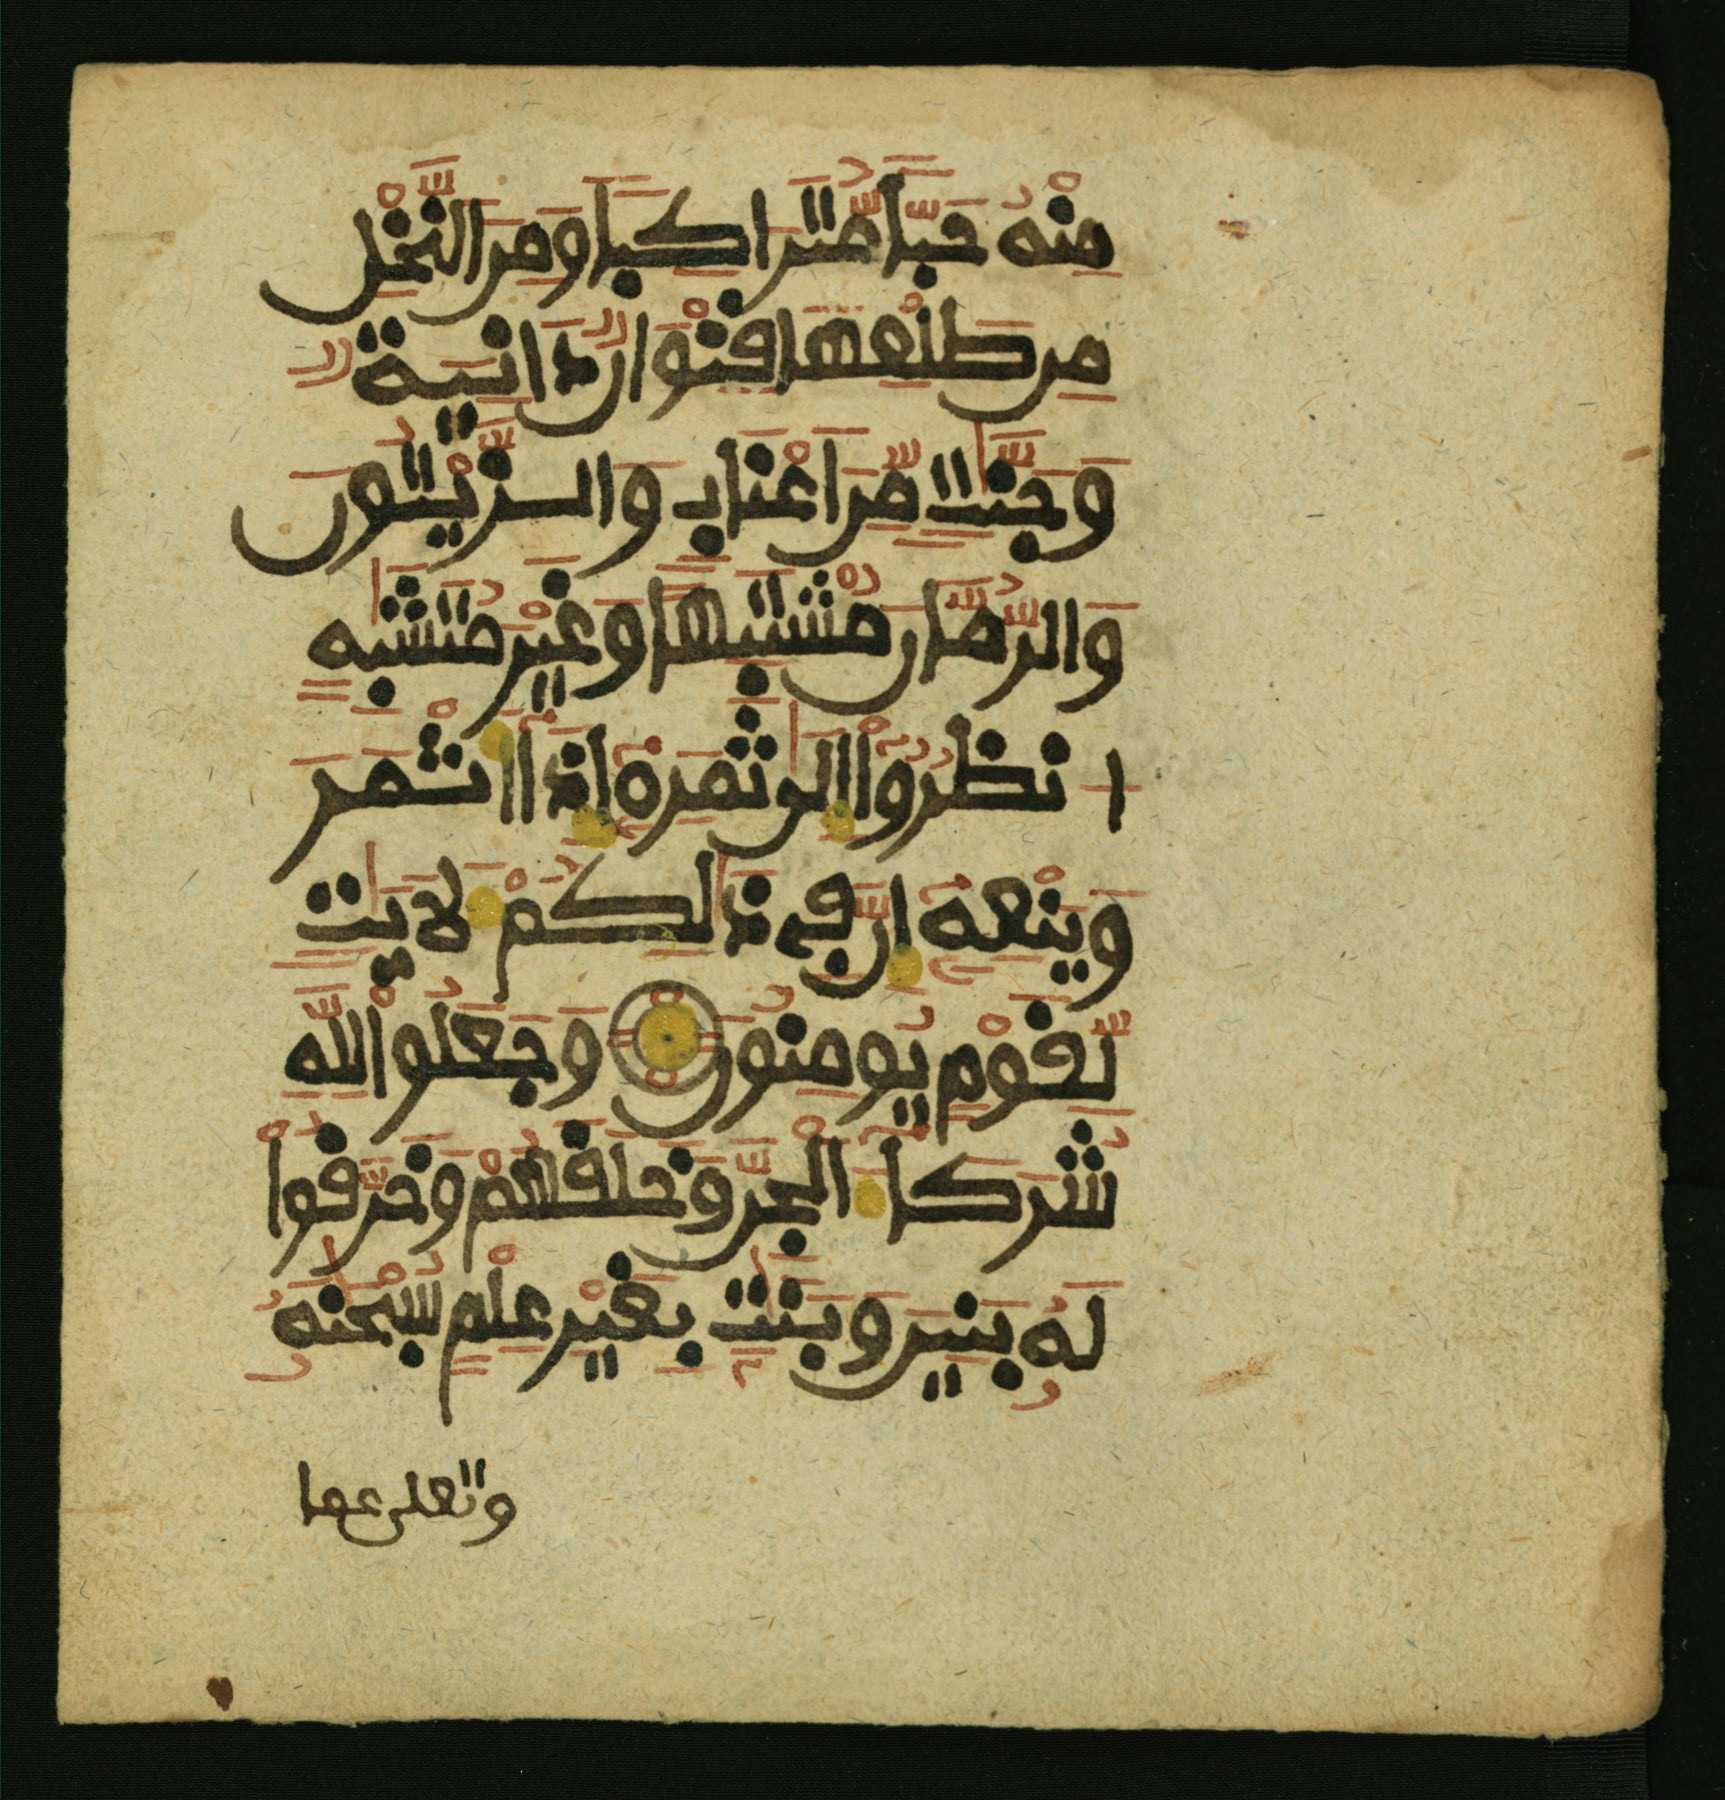 مِنْهُ حَبّٗا مُّتَرَاكِبٗا وَمِنَ ٱلنَّخْلِ
مِن طَلْعِهَا قِنْوَانٞ دَانِيَةٞ
وَجَنَّٰتٖ مِّنَ اَعْنَابٖ وَالزَّيْتُونَ
وَالرُّمَّانَ مُشْتَبِهٗا وَغَيْرَ مُتَشَٰبِهٍ
ا۟نظُرُوٓا۟ إِلَىٰ ثَمَرِهِۦٓ إِذَآ أَثْمَرَ
وَيَنْعِهِۦٓ إِنَّ فِے ذَٰلِكُمْ لَأٓيَٰتٖ
لِّقَوْمٖ يُومِنُونَ وَجَعَلُوا۟ لِلهِ
شُرَكَآءَ ٱلْجِنَّ وَخَلَقَهُمْ وَخَرَّقُوا۟
لَهُۥ بَنِينَ وَبَنَٰتِۭ بِغَيْرِ عِلْمٖ سُبْحَٰنَهُۥ
وتعلى عما